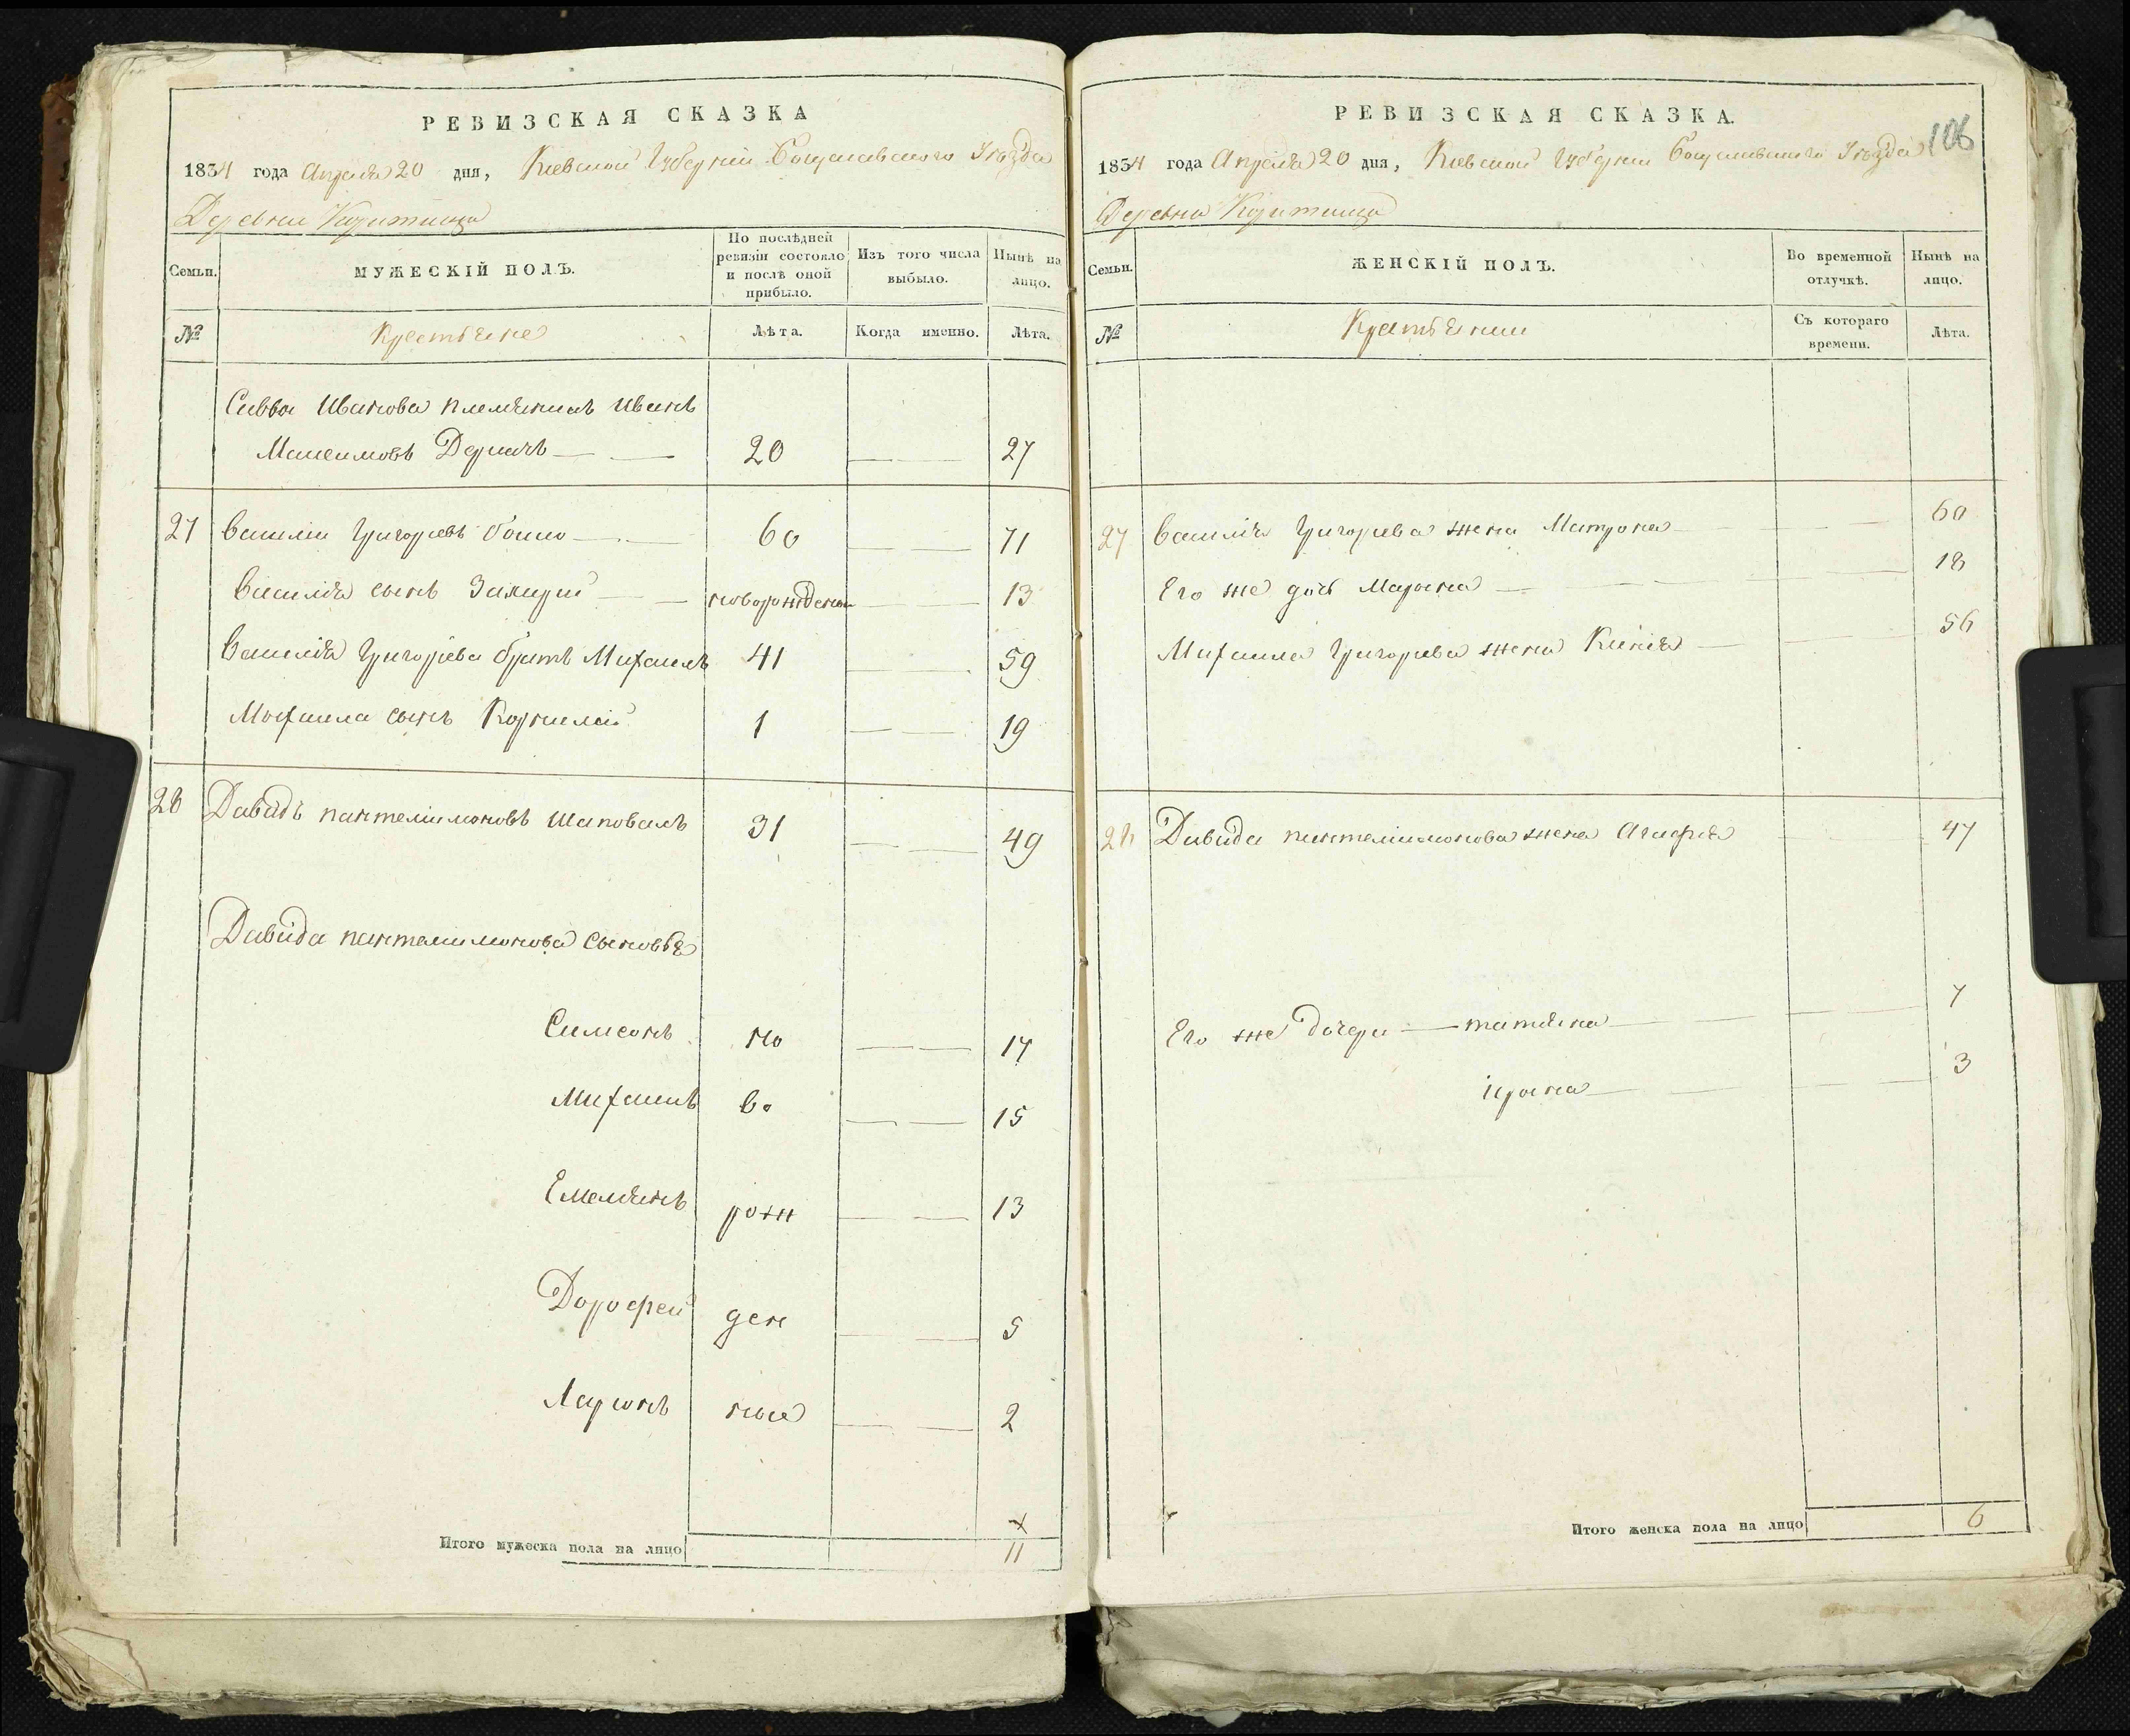 РЕВИЗСКАЯ СКАЗКА
1834 года Апреля 20 дня, Киевской Губернии Богуславского Уезда
Деревни
Семьи.
МУЖЕСКІЙ ПОЛЪ.
По послѣдней ревизіи состояло и послѣ оной прибыло.
Изъ того числа выбыло.
Нынѣ на лицо.
№
Крестьяне
Лѣта.
Когда именно.
Лѣта.
Савва Иванова племянникъ Иванъ
Максимовъ Деркачъ 20 27
27 Василий Григорьевъ 60 71
Василія сынъ Захарій новорожденный 13
Василія Григорьева братъ Михаилъ 41 59
Михаила сынъ Корнилій 1 19
28 Давидъ пантелимоновъ Шаповалъ 31 49
Давида пантелимонова сыновья
Симеонъ но 17
Михаилъ во 15
Емельянъ рож 13
Дорофей ден 5
Ларионъ ные 2
Итого мужеска пола на лицо 11
РЕВИЗСКАЯ СКАЗКА.
106
1834 года Апреля 20 дня, Киевской Губернии Богуславского Уезда
Деревни
Семьи.
ЖЕНСКІЙ ПОЛЪ.
Во временной отлучкѣ.
Нынѣ на лицо.
№
Крестьянки
Съ котораго времени.
Лѣта.
27 Василія Григорьева жена Матрона 60
Его же дочь Марьяна 18
Михаила Григорьева жена Ксенія 56
28 Давида пантелимонова жена Агафія 47
Его же дочери татьяна 7
Ирина 3
Итого женска пола на лицо 6